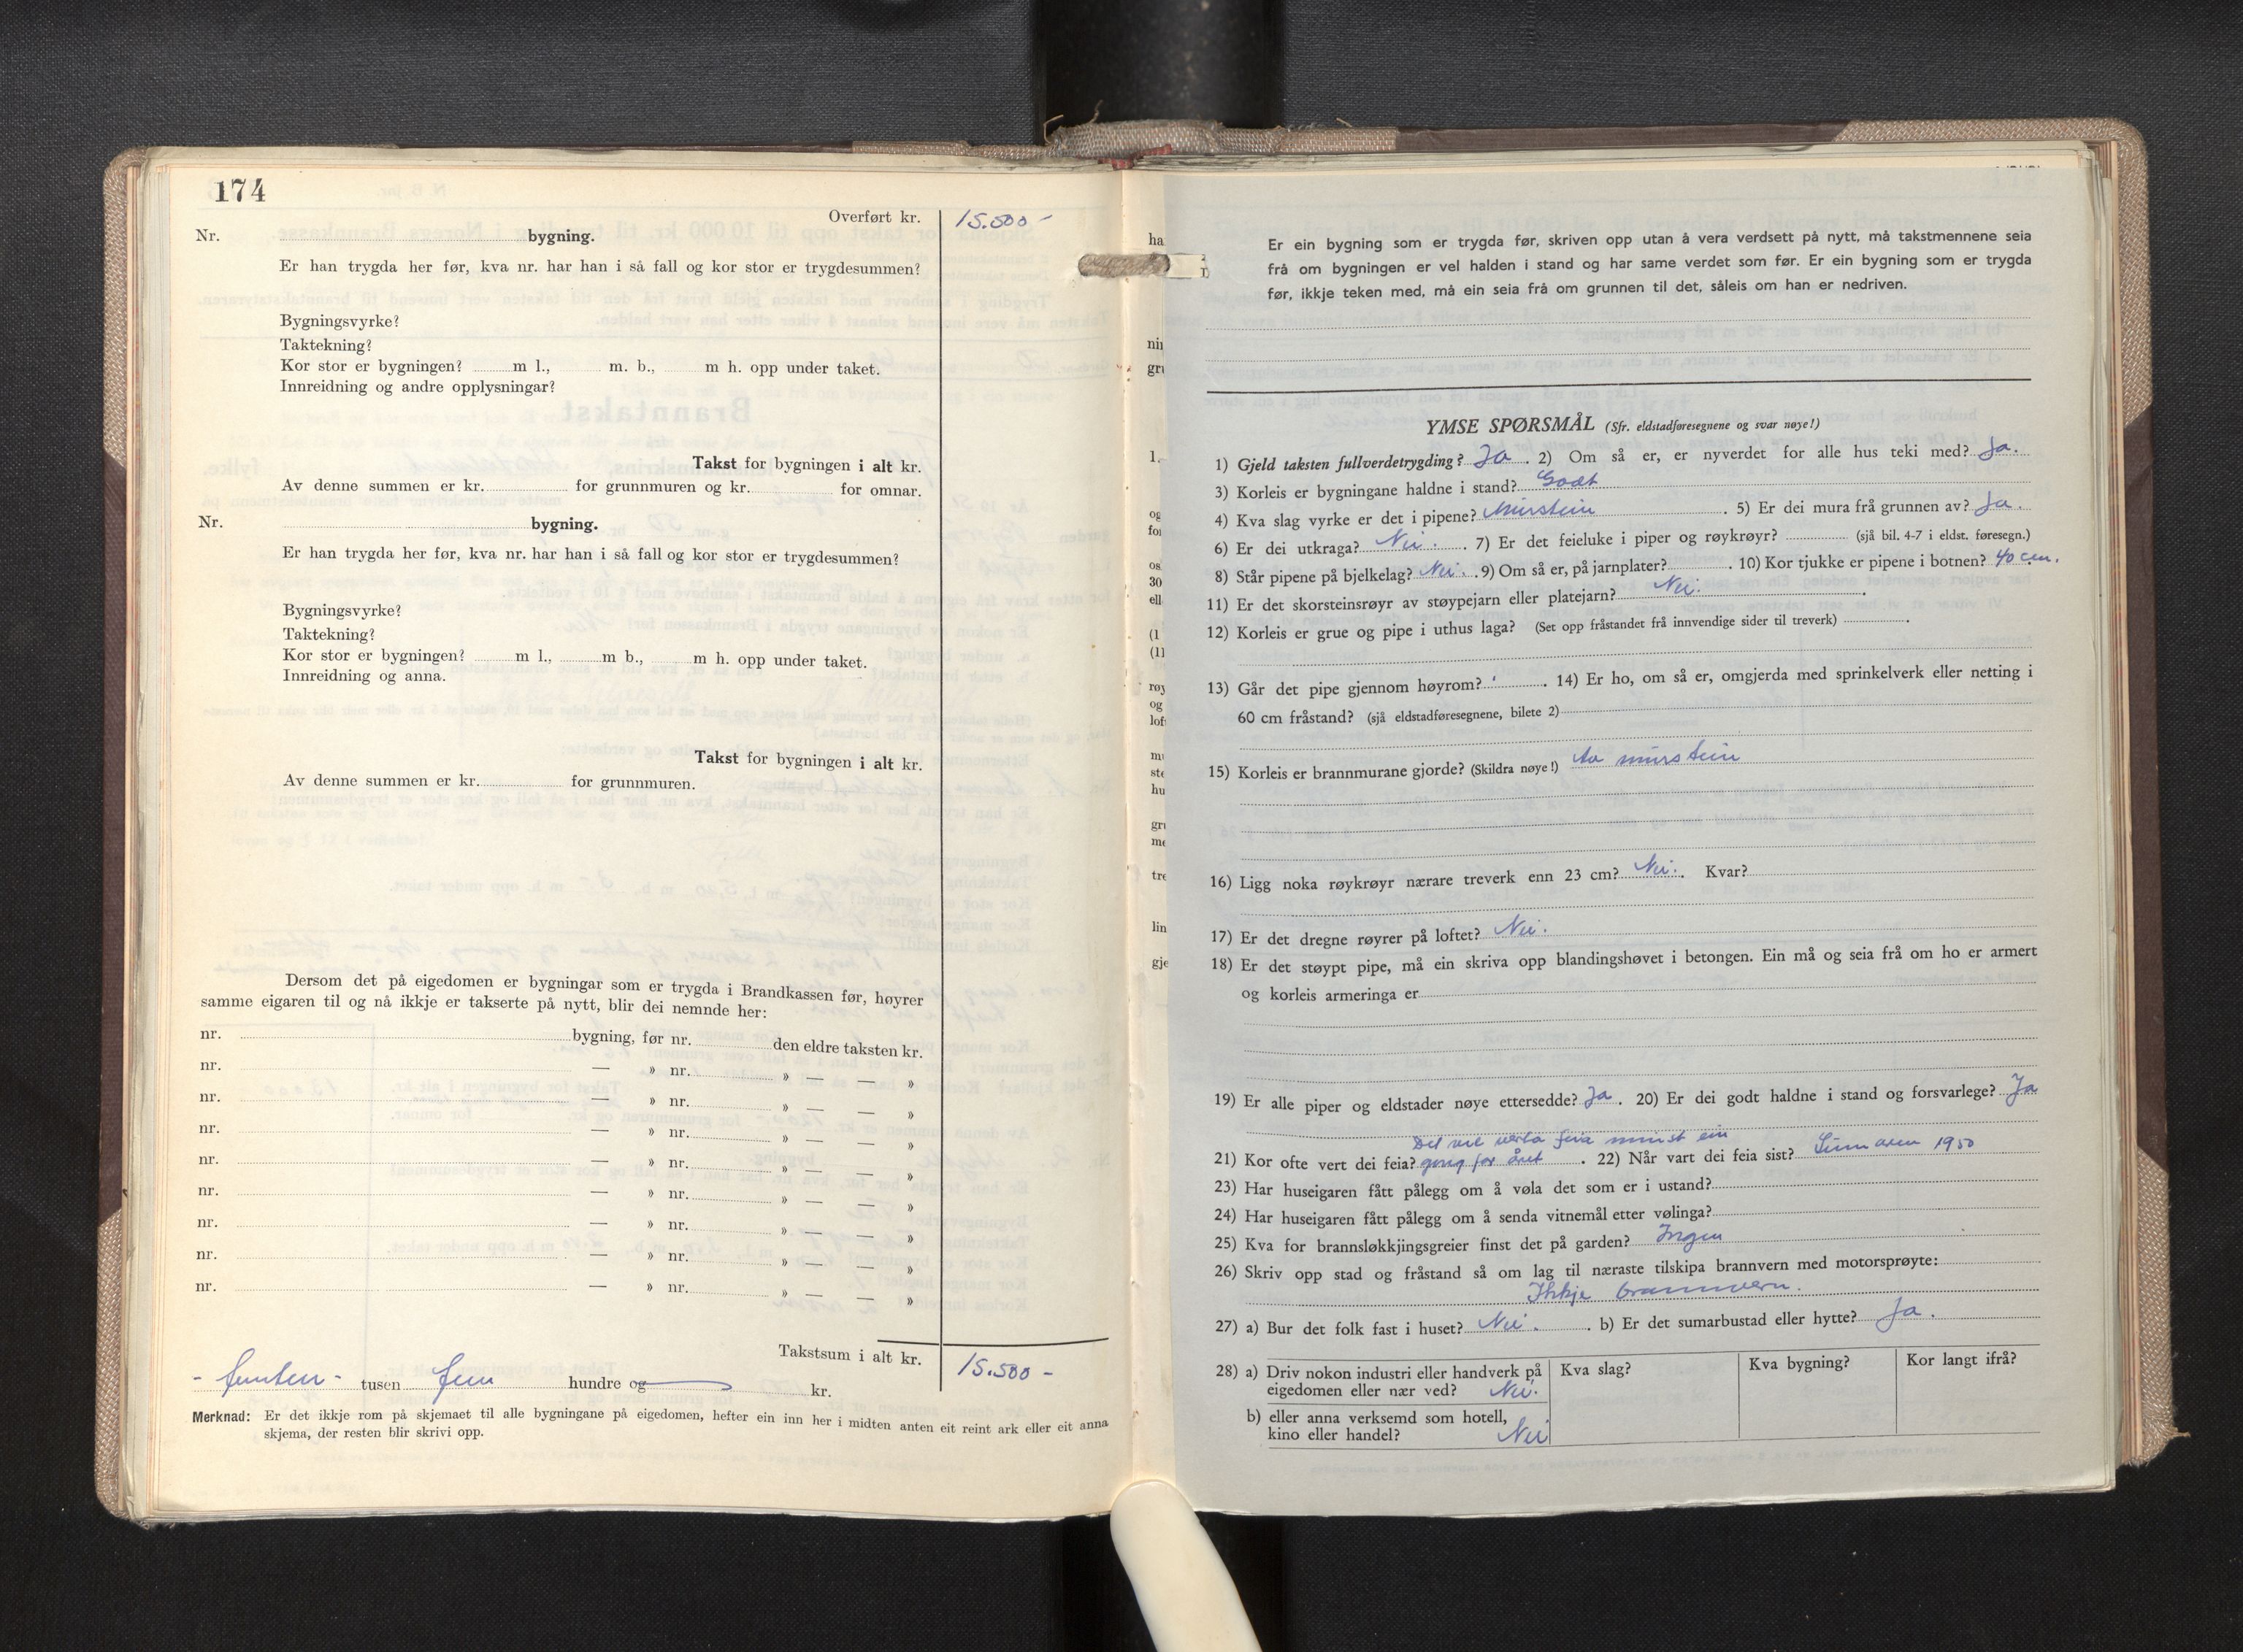 174
Overført kr. 15.500-
Nr. bygning.
Er han trygda her før, kva nr. har han i så fall og kor stor er trygdesummen?
Bygningsvyrke?
Taktekning?
Kor stor er bygningen? m l., m. b., m h. opp under taket.
Innreidning og andre opplysningar?
Takst for bygningen i alt kr.
Av denne summen er kr. for grunnmuren og kr. for omnar.
Nr. bygning.
Er han trygda her før, kva nr. har han i så fall og kor stor er trygdesummen?
Bygningsvyrke?
Taktekning?
Kor stor er bygningen? m l., m b., m h. opp under taket.
Innreidning og anna.
Takst for bygningen i alt kr.
Av denne summen er kr. for grunnmuren.
Dersom det på eigedomen er bygningar som er trygda i Brandkassen før, høyrer
samme eigaren til og nå ikkje er takserte på nytt, blir dei nemnde her:
nr. bygning, før nr. den eldre taksten kr.
nr. — » nr. » — — »
nr. — » nr. » — — »
nr. — » nr. » — — »
nr. — » nr. » — — »
nr. — » nr. » — — »
nr. — » nr. » — — »
nr. — » nr. » — — »
nr. — » nr. » — — »
Takstsum i alt kr. 15.500-
- femten - tusen fem hundre og kr.
Merknad: Er det ikkje rom på skjemaet til alle bygningane på eigedomen, hefter ein inn her i midten anten eit reint ark eller eit anna
skjema, der resten blir skrivi opp.
Er ein bygning som er trygda før, skriven opp utan å vera verdsett på nytt, må takstmennene seia
frå om bygningen er vel halden i stand og har same verdet som før. Er ein bygning som er trygda
før, ikkje teken med, må ein seia frå om grunnen til det, såleis om han er nedriven.
YMSE SPØRSMÅL (Sfr. eldstadføresegnene og svar nøye!)
1) Gjeld taksten fullverdetrygding? Ja. 2) Om så er, er nyverdet for alle hus teki med? Ja.
3) Korleis er bygningane haldne i stand? Godt
4) Kva slag vyrke er det i pipene? Murstein. 5) Er dei mura frå grunnen av? Ja.
6) Er dei utkraga? Nei. 7) Er det feieluke i piper og røykrøyr? (sjå bil. 4-7 i eldst. føresegn.)
8) Står pipene på bjelkelag? Nei. 9) Om så er, på jarnplater? 10) Kor tjukke er pipene i botnen? 40 cm.
11) Er det skorsteinsrøyr av støypejarn eller platejarn? Nei.
12) Korleis er grue og pipe i uthus laga? (Set opp fråstandet frå innvendige sider til treverk)
13) Går det pipe gjennom høyrom? 14) Er ho, om så er, omgjerda med sprinkelverk eller netting i
60 cm fråstand? (sjå eldstadføresegnene, bilete 2)
15) Korleis er brannmurane gjorde? (Skildra nøye!) Av murstein
16) Ligg noka røykrøyr nærare treverk enn 23 cm? Nei. Kvar?
17) Er det dregne røyrer på loftet? Nei.
18) Er det støypt pipe, må ein skriva opp blandingshøvet i betongen. Ein må og seia frå om ho er armert
og korleis armeringa er
19) Er alle piper og eldstader nøye ettersedde? Ja. 20) Er dei godt haldne i stand og forsvarlege? Ja
Det vil verta feia minst ein
21) Kor ofte vert dei feia? gong for året. 22) Når vart dei feia sist? Sumaren 1950
23) Har huseigaren fått pålegg om å vøla det som er i ustand?
24) Har huseigaren fått pålegg om å senda vitnemål etter vølinga?
25) Kva for brannsløkkjingsgreier finst det på garden? Ingen
26) Skriv opp stad og fråstand så om lag til næraste tilskipa brannvern med motorsprøyte:
Ikkje brannvern.
27) a) Bur det folk fast i huset? Nei. b) Er det sumarbustad eller hytte? Ja.
28) a) Driv nokon industri eller handverk på Kva slag? Kva bygning? Kor langt ifrå?
eigedomen eller nær ved? Nei.
b) eller anna verksemd som hotell,
kino eller handel? Nei